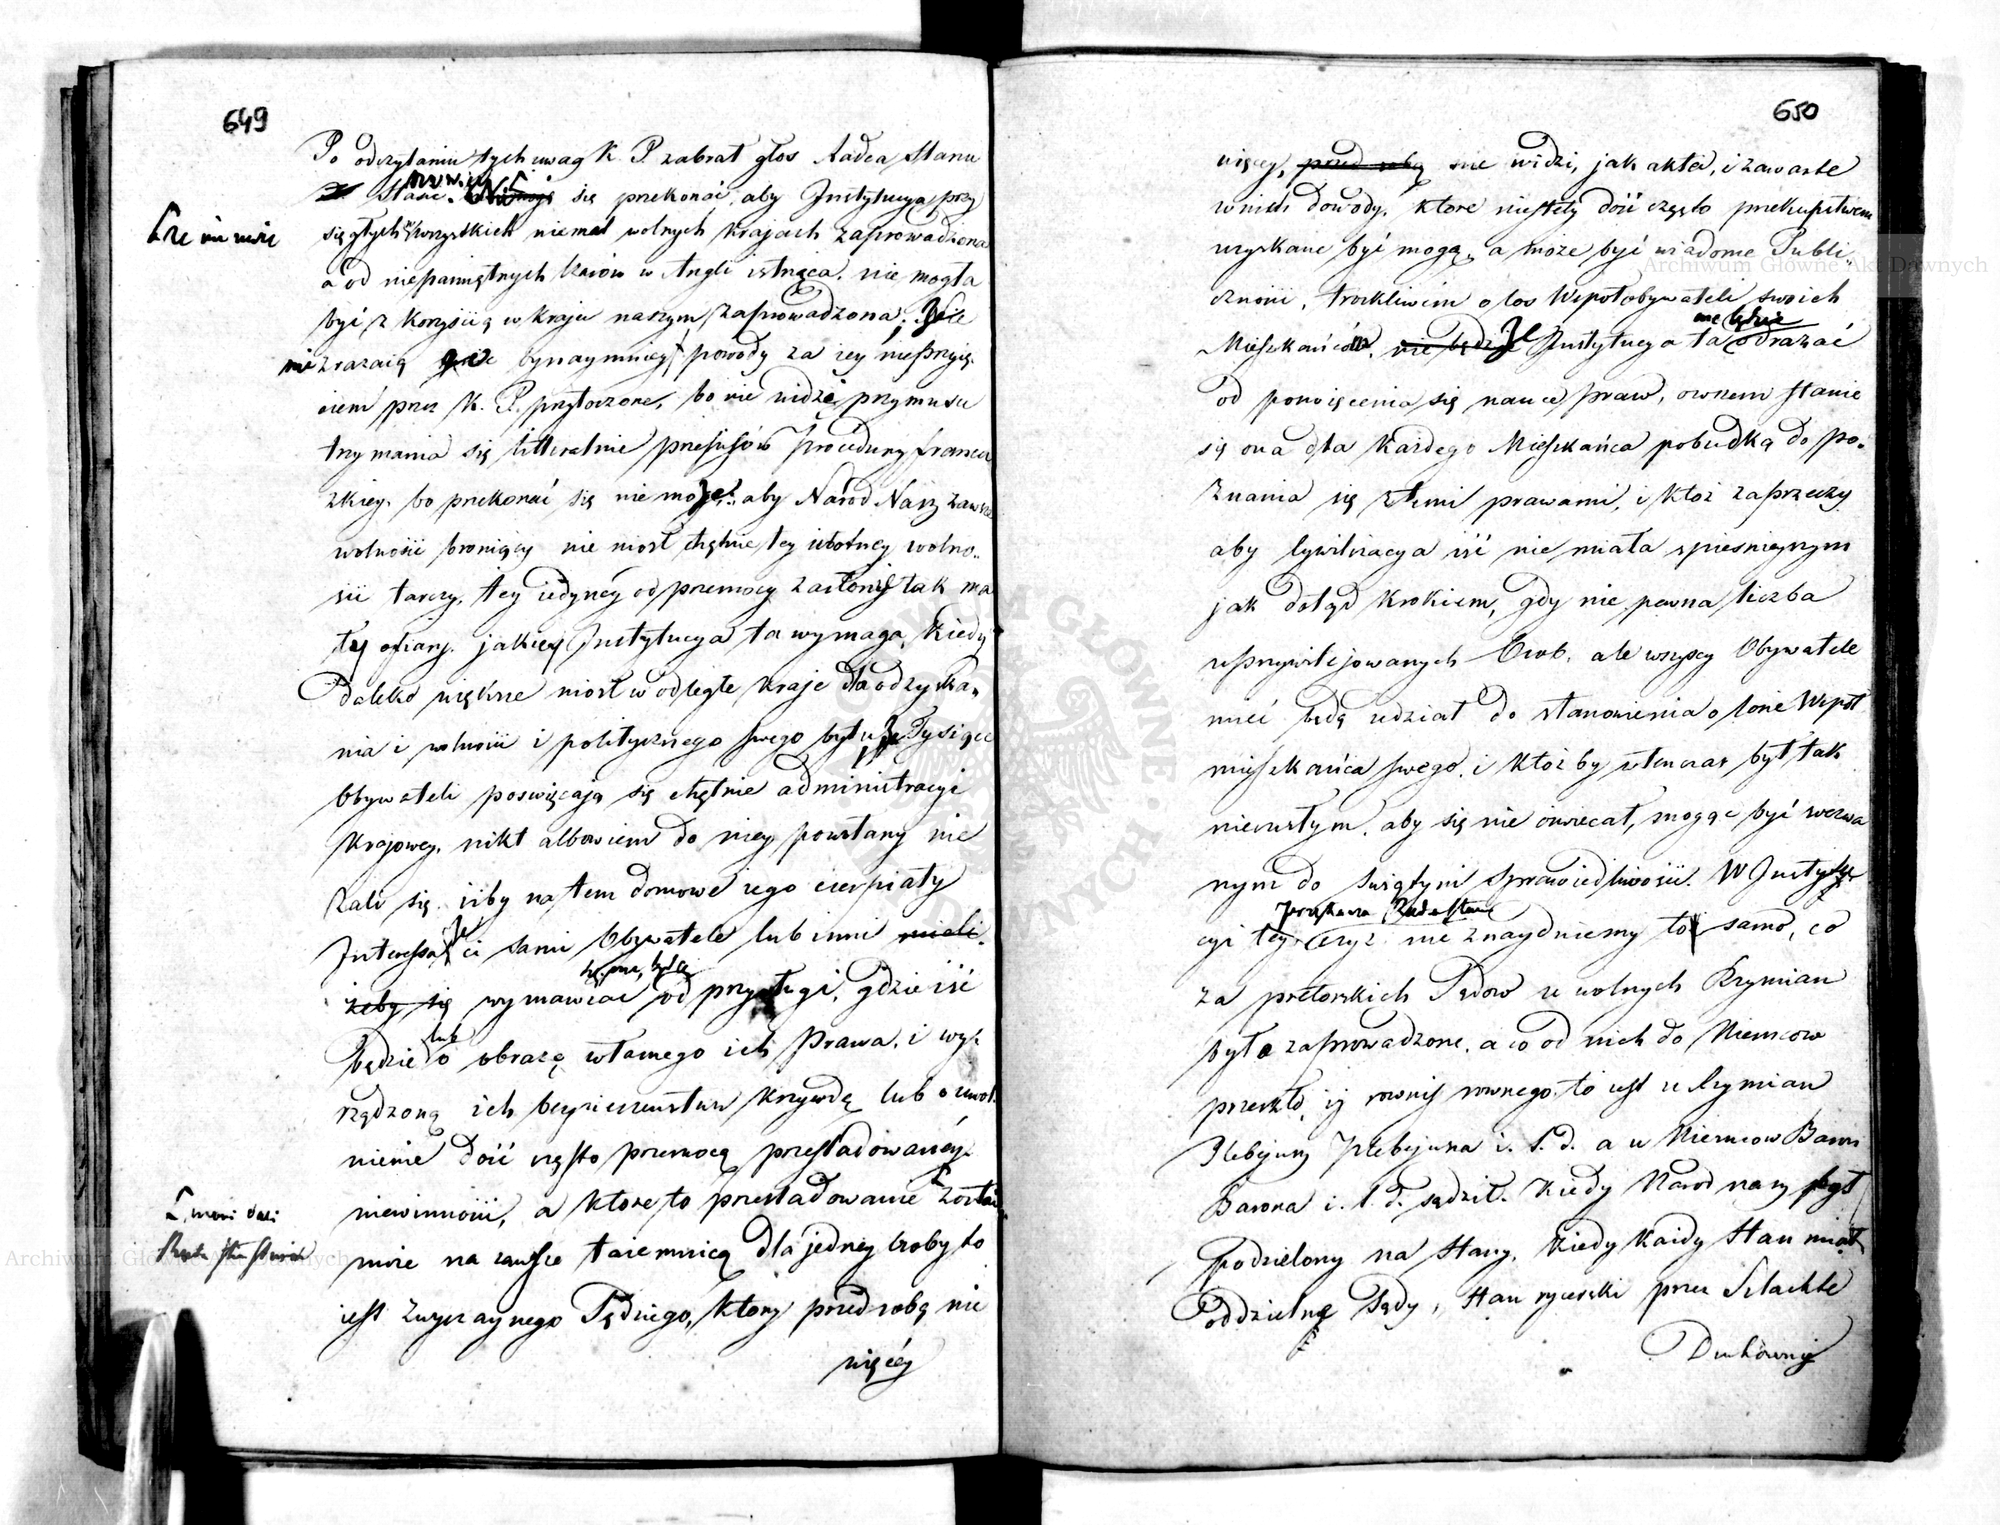 649
Po odczytaniu tych uwag K. P. zabrał głos Radca Stanu
Stasic. mówiąc się przekonać, aby Instytucya przy
Że nie może
sięgłych w wszystkich niemal wolnych krajach zaprowadzona
a od niepamiętnych czasów w Anglii istnąca, nie mogła
być z korzyścią w kraju naszym zaprowadzona; Że
nie zrazaią go bynaymniey powody za iey nieprzyię
ciem przez K. P. przytoczone, bo nie widzi przymusu
trzymania się litteralnie przepisów procedury francu
zkiey, bo przekonać się nie może: aby Naród Nasz zawsze
wolności broniący nie niosł chętnie tey istotney wolno-
ści tarczy, tey iedyney od przemocy zasłony tak ma
łey ofiary, jakiey Instytucya ta wymaga, kiedy
daleko większe niosł w odległe kraje dla odzyska-
nia i wolności i politycznego swego bytu, że Tysiące
Obywateli poswięcają się chętnie administracyi
krajowey, nikt albowiem do niey powołany nie
żali się iżby na tem domowe iego cierpiały
Interessa, że ci sami Obywatele lub inni mieli
żeby się wymawiać od przysługi, gdzie iść
będzie lub o obrazę własnego ich Prawa, i wy-
rządzoną ich bezpieczeństwu krzywdę lub o uwol
nienie dość często przemocą prześladowaney
niewinności, a które to prześladowanie zostać
może na zawsze taiemnicą dla jedney osoby to
iest zwyczaynego Sędziego, który przed sobą nie
więcey
650
więcey, przed sobą nie widzi, jak akta, i zawarte
w nich dowody, które niestety dość często przekupstwem
uzyskane być mogą, a może być wiadome Publi-
czności, troskliwem o los Współobywateli swoich
Mieszkańców, nie będzie Że Instytucya ta nie będzie odrażać
od poświęcenia się nauce praw, owszem stanie
się ona dla każdego Mieszkańca pobudką do po-
znania się z temi prawami, i któż zaprzeczy
aby cywilizacya iść nie miała spiesznieyszym
jak dotąd krokiem, gdy nie pewna liczba
uprzywilejowanych Osob, ale wszyscy Obywatele
mieć będą udział do stanowienia o losie Wspoł
mieszkańca swego, i któżby wtenczas był tak
nieczułym, aby się nie oswiecał, mogąc być wezwa
nym do świątyni Sprawiedliwości. W Instytu-
cyi tey czyż nie znaydziemy to samo, co
za pretorskich Sądów u wolnych Rzymian
było zaprowadzone, a co od nich do Niemców
przeszło, iż rowny rownego, to iest u Rzymian
Plebejusz Plebejusza i. t. d. a u Niemców Baron
Barona i. t. d. sądził. Kiedy Narod nasz był
podzielony na Stany, kiedy każdy Stan miał
oddzielne Sądy, Stan rycerski przez Szlachtę
Duchowny
Archiwum Główne Akt Dawnych